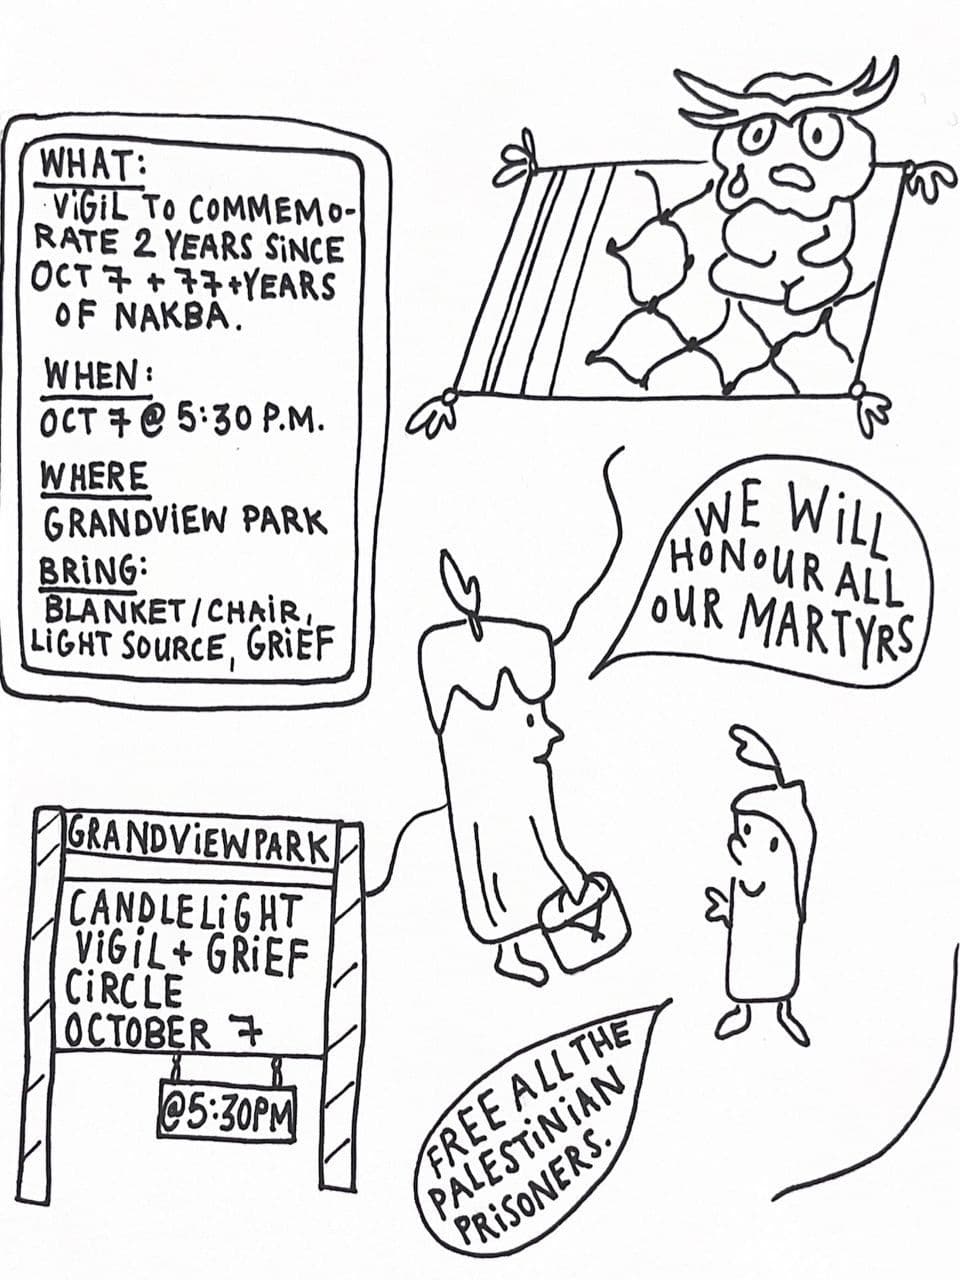 WHAT:
· ViGiL TO COMMEMO-
RATE 2 YEARS SiNCE
OCT 7 + 77+YEARS
OF NAKBA.
WHEN:
OCT 7 @ 5:30 P.M.
WHERE
GRANDViEW PARK
BRiNG:
BLANKET/CHAIR,
LiGHT SOURCE, GRiEF
WE WiLL
HONOUR ALL
OUR MARTYRS
GRANDViEW PARK
CANDLELiGHT
ViGiL + GRiEF
CiRCLE
OCTOBER 7
@5:30PM
FREE ALL THE
PALESTiNiAN
PRiSONERS.